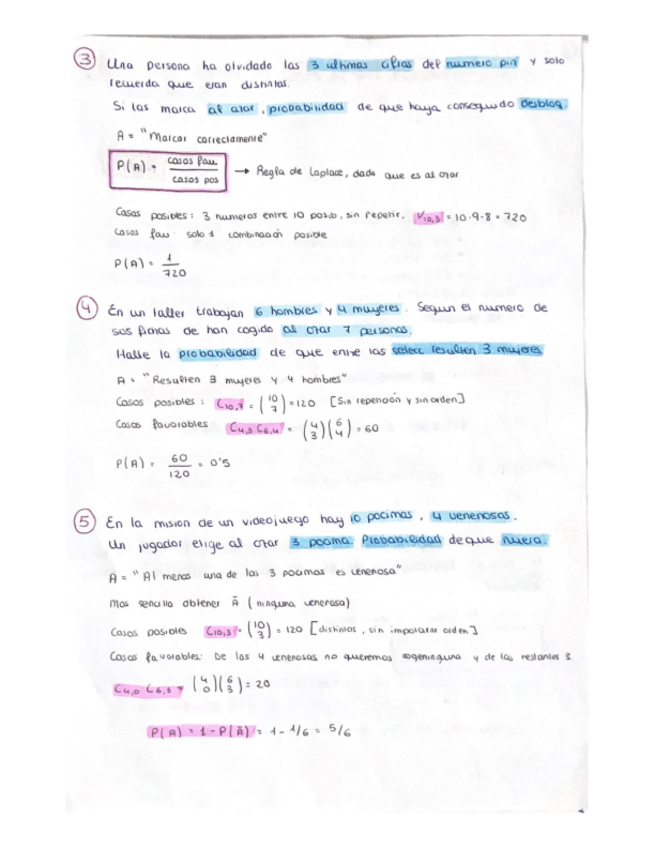 3 Una persona ha olvidado las 3 últimas cifras del numero pin y solo
recuerda que eran distintas.
Si las marca al azar, probabilidad de que haya conseguido desbloq.
A = "Marcar correctamente"
P(A) = casos fav / casos pos → Regla de Laplace, dado que es al azar
Casos posibles: 3 numeros entre 10 posib, sin repetir. V10,3 = 10·9·8 = 720
Casos fav solo 1 combinación posible
P(A) = 1/720
4 En un taller trabajan 6 hombres y 4 mujeres. Segun el numero de
sus fichas de han cogido al azar 7 personas.
Halle la probabilidad de que entre las selecc resulten 3 mujeres
A = "Resulten 3 mujeres y 4 hombres"
Casos posibles: C10,7 = (10 7) = 120 [Sin repetición y sin orden]
Casos favorables C4,3 C6,4 = (4 3)(6 4) = 60
P(A) = 60/120 = 0'5
5 En la mision de un videojuego hay 10 pocimas, 4 venenosas.
Un jugador elige al azar 3 pocima. Probabilidad de que muera.
A = "Al menos una de las 3 pocimas es venenosa"
Mas sencillo obtener Ā (ninguna venenosa)
Casos posibles C10,3 = (10 3) = 120 [distintos, sin importarar orden]
Casos favorables: De las 4 venenosas no queremos coger ninguna y de las restantes 3
C4,0 C6,3 = (4 0)(6 3) = 20
P(A) = 1 - P(Ā) = 1 - 1/6 = 5/6